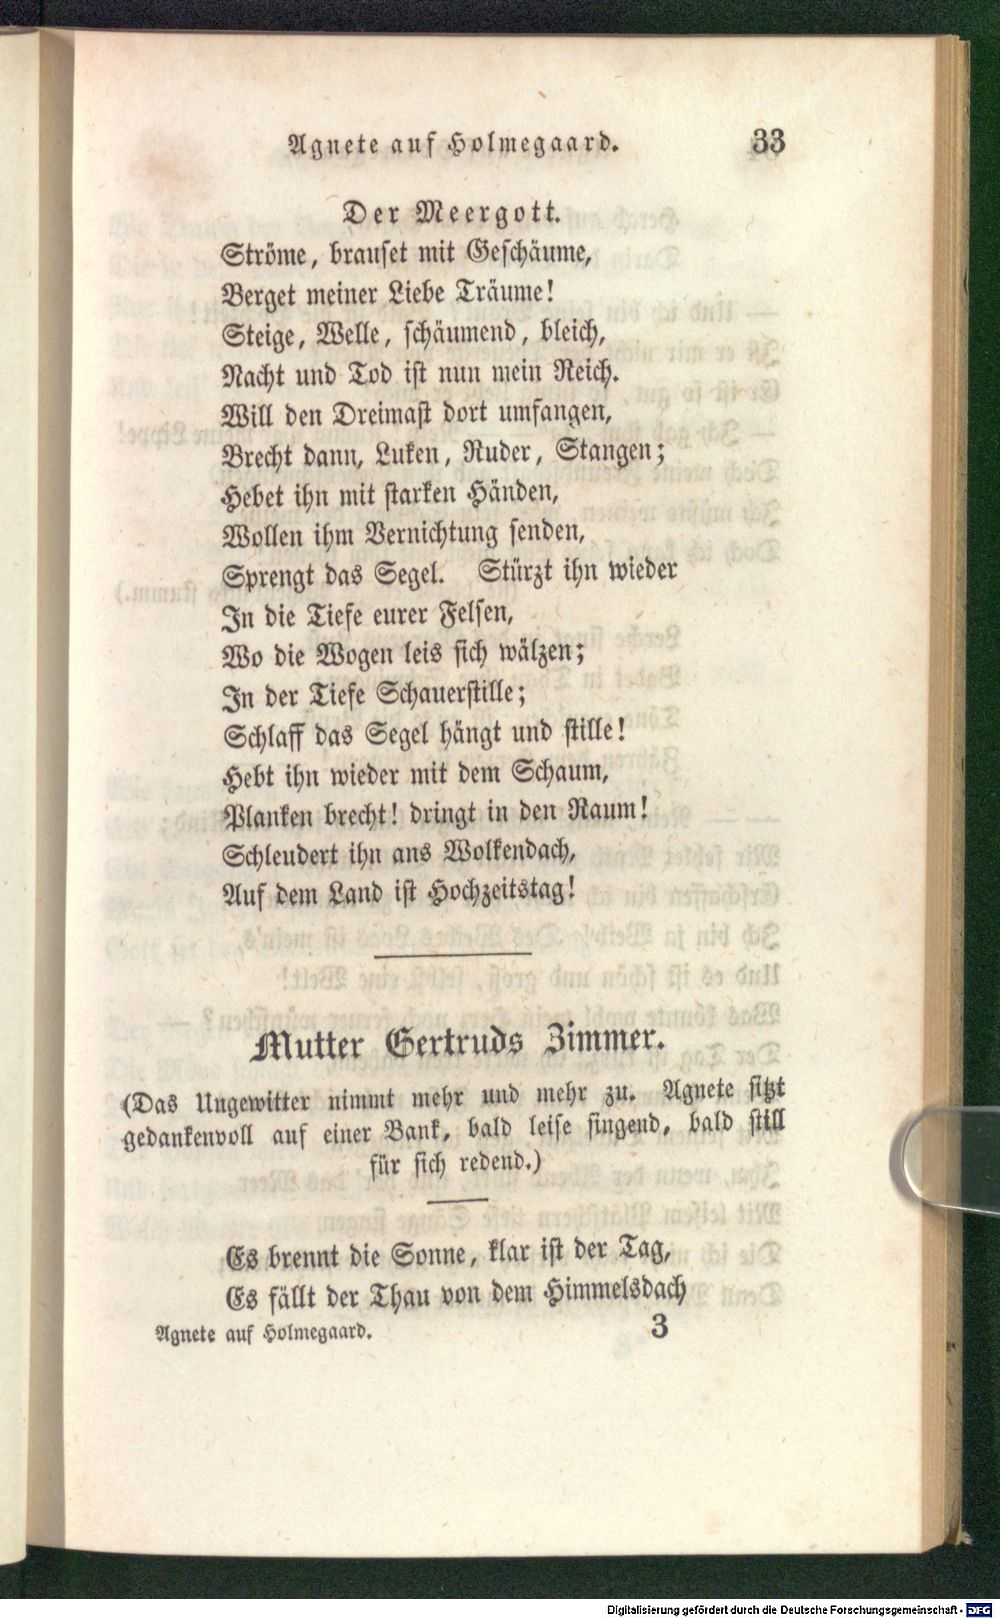 Agnete auf Holmegaard. 33
Der Meergott.
Ströme, brauset mit Geschäume,
Berget meiner Liebe Träume!
Steige, Welle, schäumend, bleich,
Nacht und Tod ist nun mein Reich.
Will den Dreimast dort umfangen,
Brecht dann, Luken, Ruder, Stangen;
Hebet ihn mit starken Händen,
Wollen ihm Vernichtung senden,
Sprengt das Segel. Stürzt ihn wieder
In die Tiefe eurer Felsen,
Wo die Wogen leis sich wälzen;
In der Tiefe Schauerstille;
Schlaff das Segel hängt und stille!
Hebt ihn wieder mit dem Schaum,
Planken brecht! dringt in den Raum!
Schleudert ihn ans Wolkendach,
Auf dem Land ist Hochzeitstag!
Mutter Gertruds Zimmer.
(Das Ungewitter nimmt mehr und mehr zu. Agnete sitzt
gedankenvoll auf einer Bank, bald leise singend, bald still
für sich redend.)
Es brennt die Sonne, klar ist der Tag,
Es fällt der Thau von dem Himmelsdach
Agnete auf Holmegaard. 3
Digitalisierung gefördert durch die Deutsche Forschungsgemeinschaft - DFG